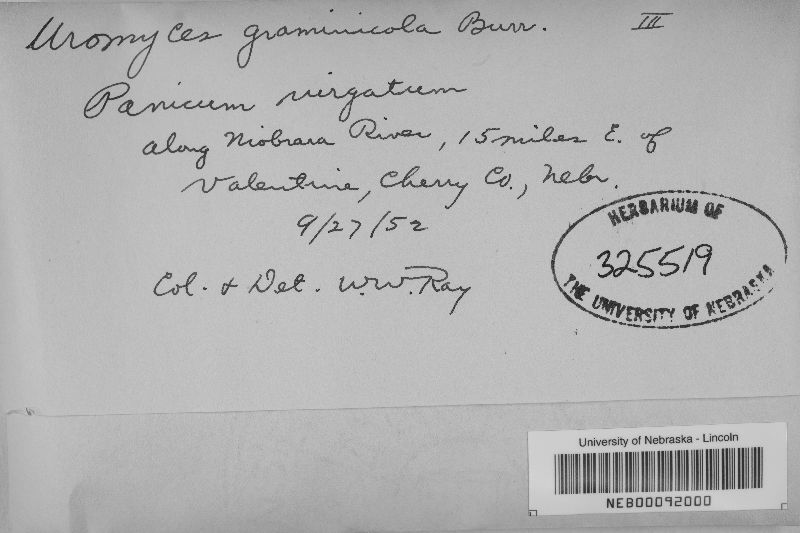 Uromyces graminicola Burr. III
Panicum virgatum
along Niobrara River, 15 miles E. of
Valentine, Cherry Co., Nebr.
9/27/52
Col. & Det. W.W. Ray
HERBARIUM OF
325519
THE UNIVERSITY OF NEBRASKA
University of Nebraska - Lincoln
NEB00092000